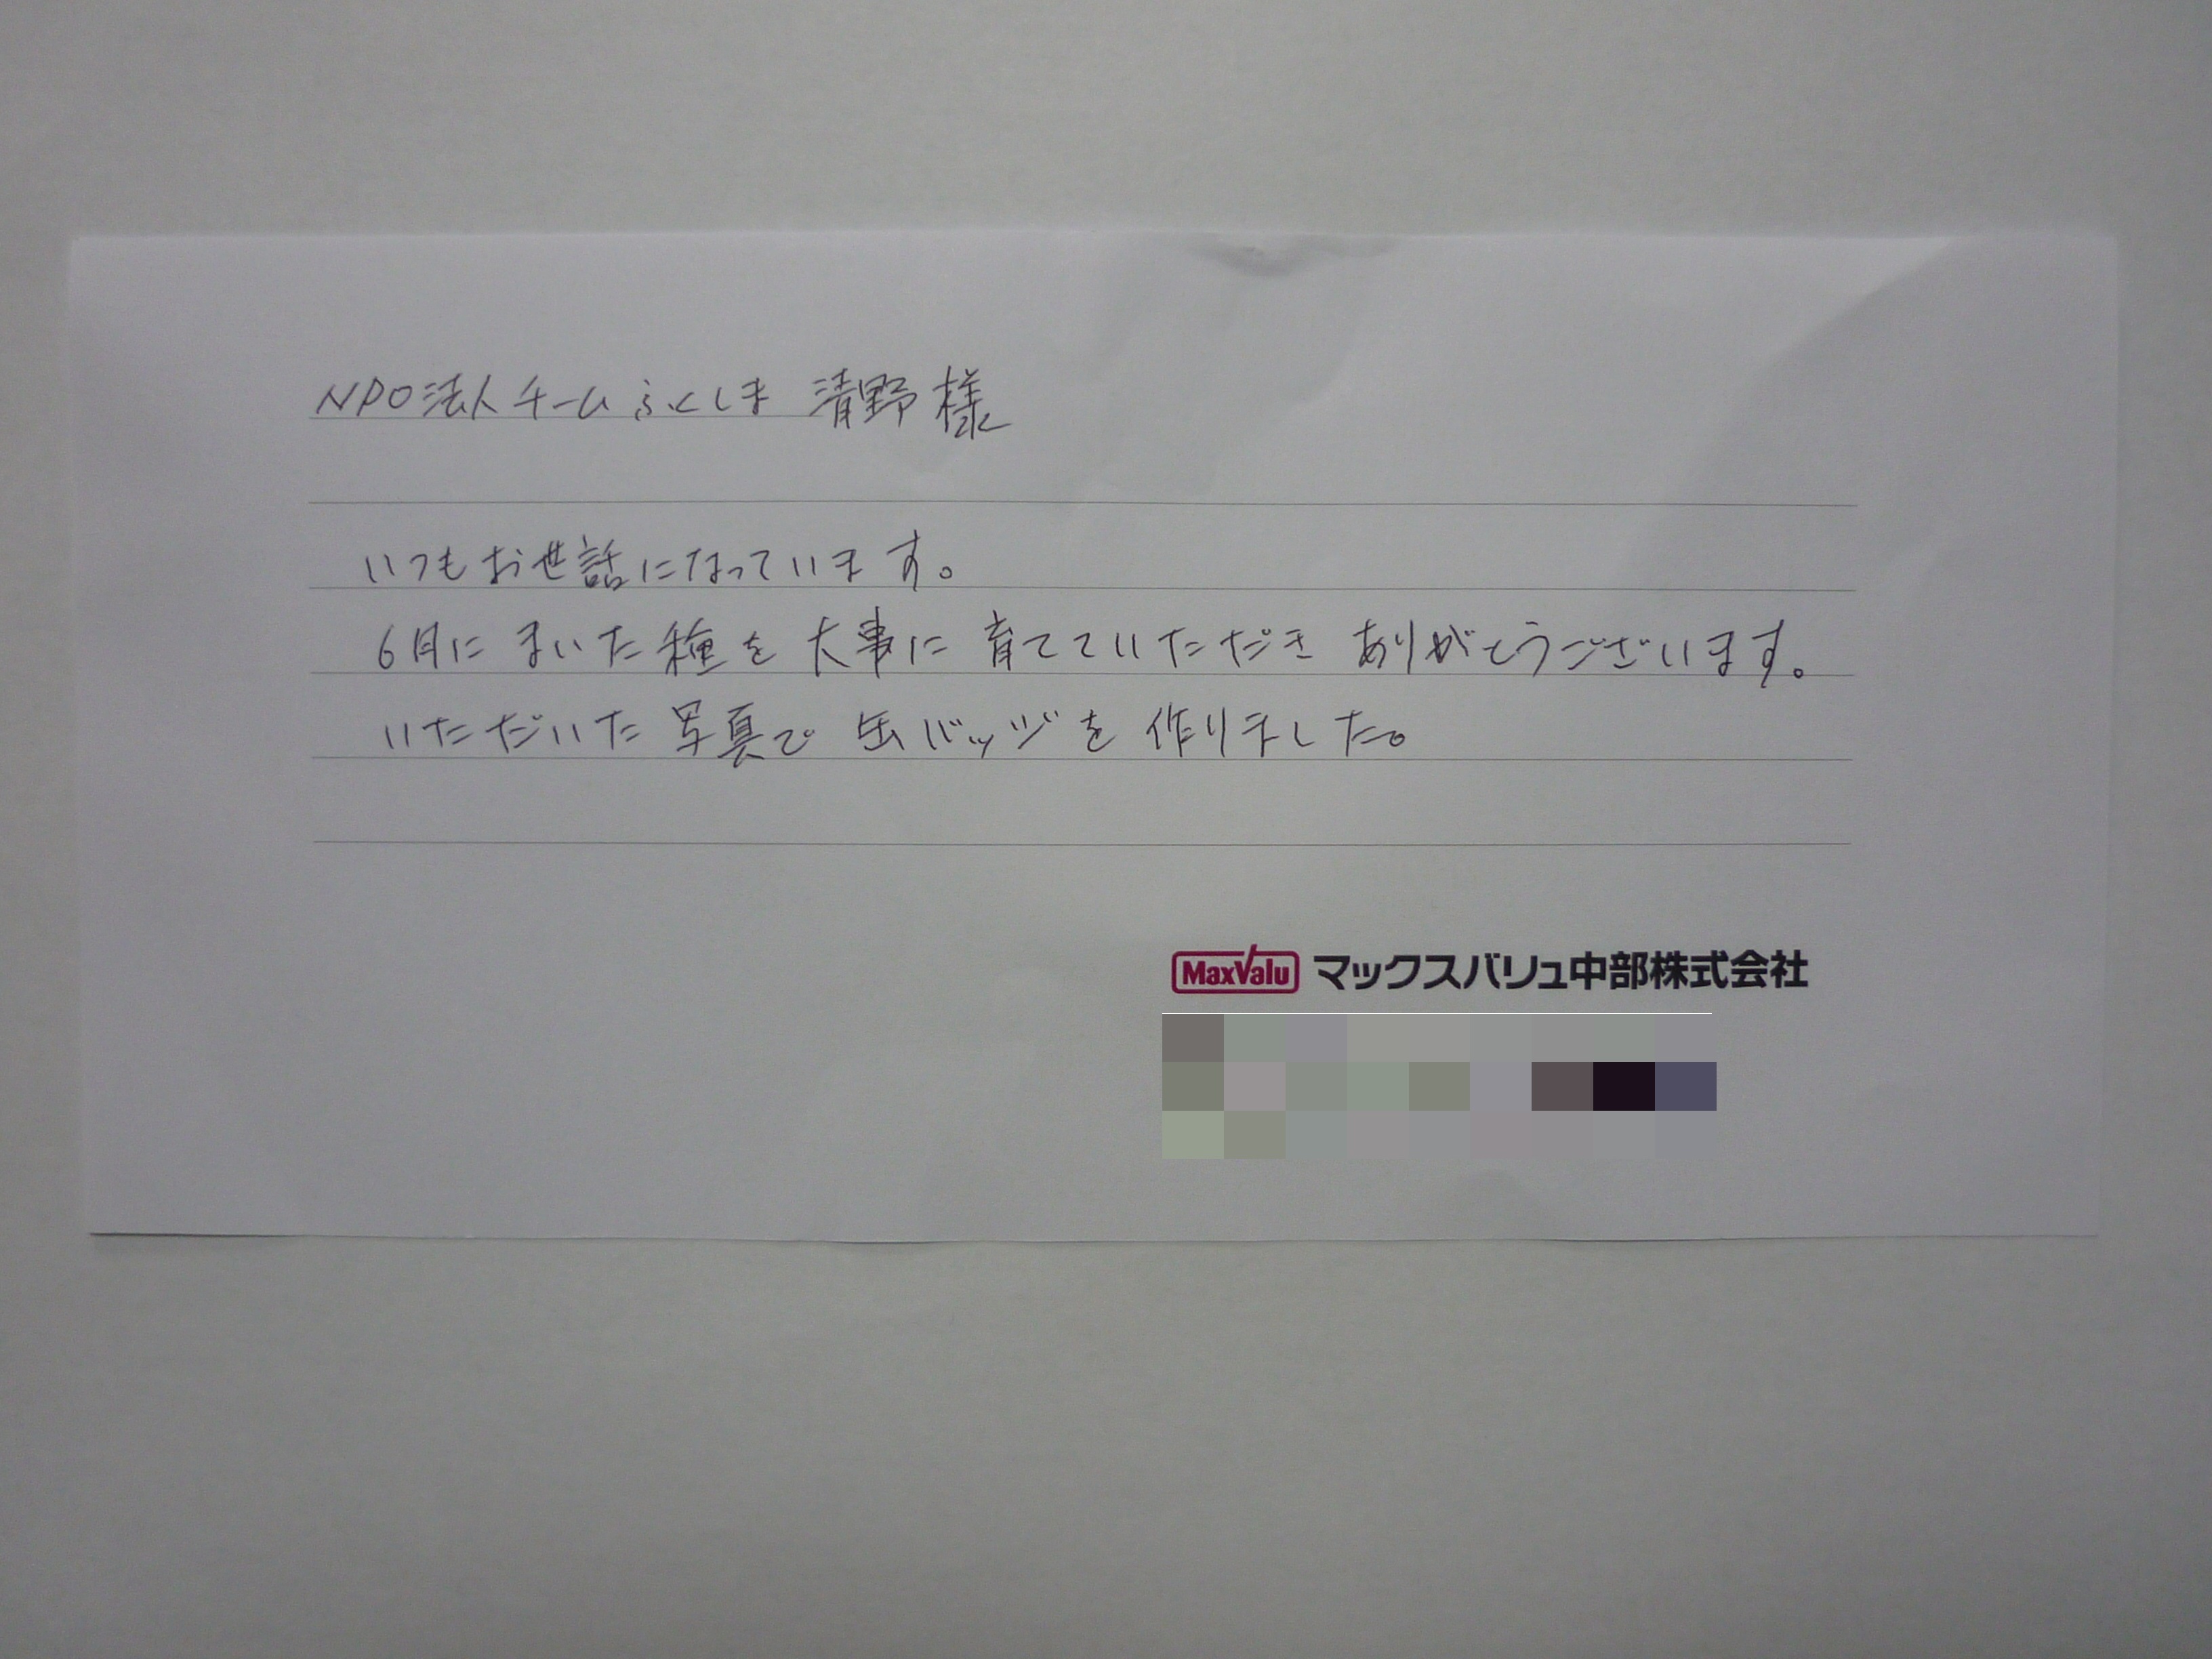 NPO法人チームふくしま 清野様
いつもお世話になっています。
6月にまいた種を大事に育てていただきありがとうございます。
いただいた写真で缶バッヂを作りました。
MaxValu マックスバリュ中部株式会社